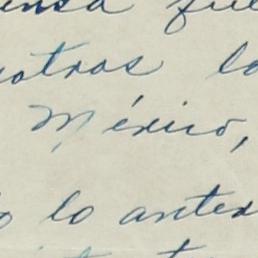 ensa fue
sotros lo
México,
o lo anter